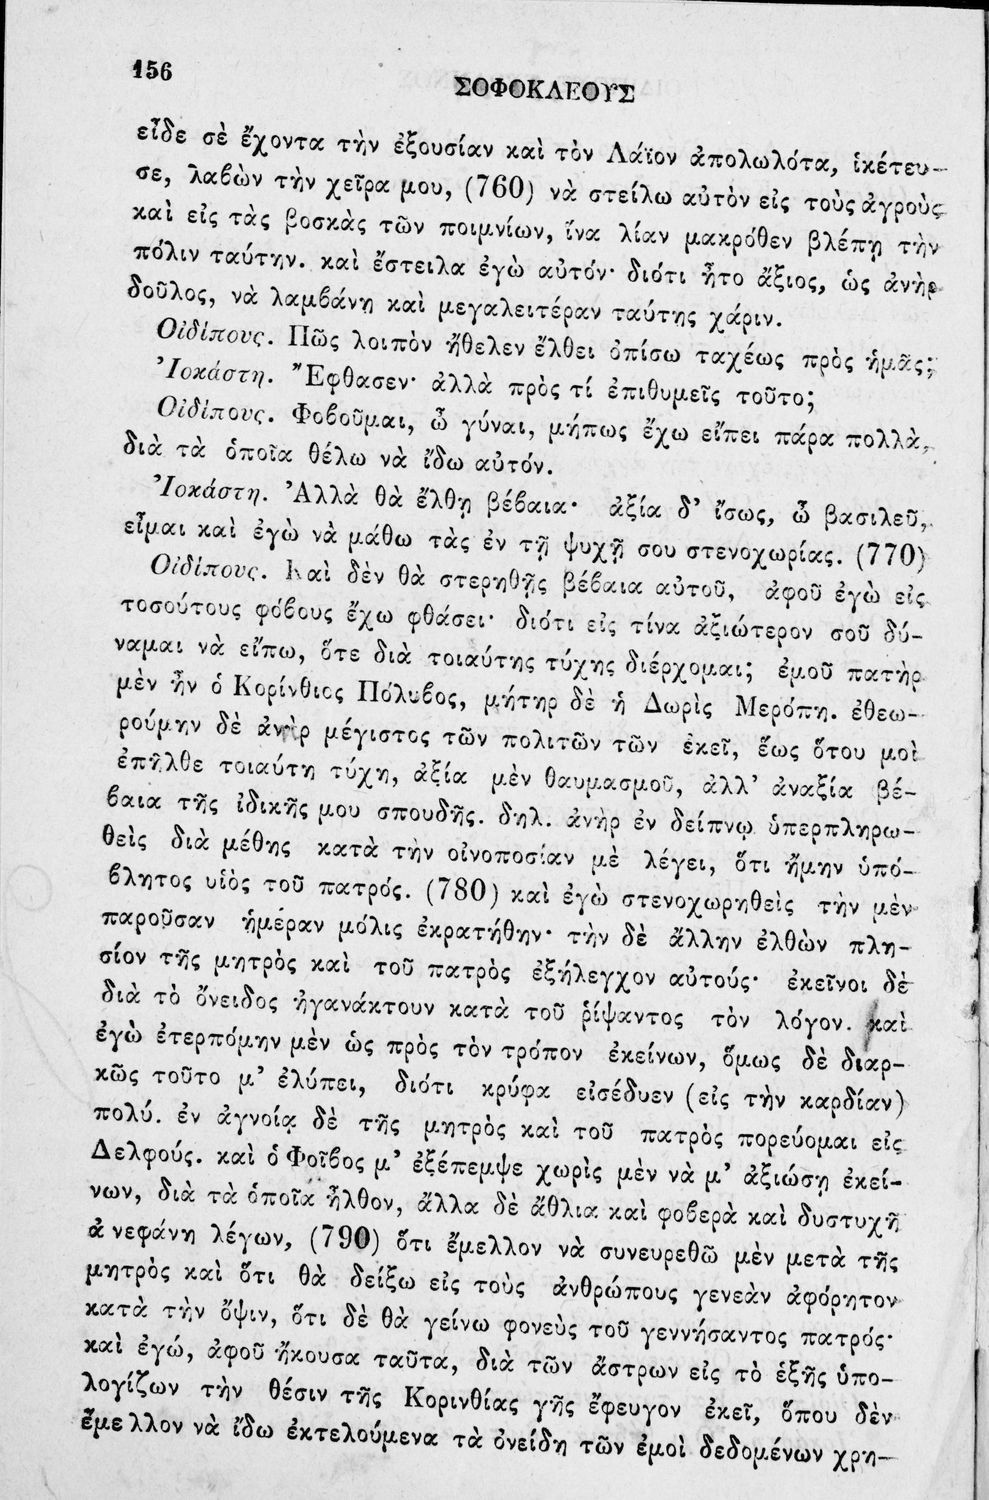 156
ΣΟΦΟΚΛΕΟΥΣ
εἶδε σὲ ἔχοντα τὴν ἐξουσίαν καὶ τὸν Λάϊον ἀπολωλότα, ἱκέτευ-
σε, λαβὼν τὴν χεῖρα μου, (760) νὰ στείλω αὐτὸν εἰς τοὺς ἀγροὺς
καὶ εἰς τὰς βοσκὰς τῶν ποιμνίων, ἵνα λίαν μακρόθεν βλέπῃ τὴν
πόλιν ταύτην. καὶ ἔστειλα ἐγὼ αὐτόν· διότι ἦτο ἄξιος, ὡς ἀνὴρ
δοῦλος, νὰ λαμβάνῃ καὶ μεγαλειτέραν ταύτης χάριν.
Οἰδίπους. Πῶς λοιπὸν ἤθελεν ἔλθει ὀπίσω ταχέως πρὸς ἡμᾶς;
Ἰοκάστη. Ἔφθασεν· ἀλλὰ πρὸς τί ἐπιθυμεῖς τοῦτο;
Οἰδίπους. Φοβοῦμαι, ὦ γύναι, μήπως ἔχω εἴπει πάρα πολλὰ,
διὰ τὰ ὁποῖα θέλω νὰ ἴδω αὐτόν.
Ἰοκάστη. Ἀλλὰ θὰ ἔλθῃ βέβαια· ἀξία δ' ἴσως, ὦ βασιλεῦ,
εἶμαι καὶ ἐγὼ νὰ μάθω τὰς ἐν τῇ ψυχῇ σου στενοχωρίας. (770)
Οἰδίπους. Καὶ δὲν θὰ στερηθῇς βέβαια αὐτοῦ, ἀφοῦ ἐγὼ εἰς
τοσούτους φόβους ἔχω φθάσει· διότι εἰς τίνα ἀξιώτερον σοῦ δύ-
ναμαι νὰ εἴπω, ὅτε διὰ τοιαύτης τύχης διέρχομαι; ἐμοῦ πατὴρ
μὲν ἦν ὁ Κορίνθιος Πόλυβος, μήτηρ δὲ ἡ Δωρὶς Μερόπη. ἐθεω-
ρούμην δὲ ἀνὴρ μέγιστος τῶν πολιτῶν τῶν ἐκεῖ, ἕως ὅτου μοὶ
ἐπῆλθε τοιαύτη τύχη, ἀξία μὲν θαυμασμοῦ, ἀλλ' ἀναξία βέ-
βαια τῆς ἰδικῆς μου σπουδῆς. δηλ. ἀνὴρ ἐν δείπνῳ ὑπερπληρω-
θεὶς διὰ μέθης κατὰ τὴν οἰνοποσίαν μὲ λέγει, ὅτι ἤμην ὑπό-
βλητος υἱὸς τοῦ πατρός. (780) καὶ ἐγὼ στενοχωρηθεὶς τὴν μὲν
παροῦσαν ἡμέραν μόλις ἐκρατήθην· τὴν δὲ ἄλλην ἐλθὼν πλη-
σίον τῆς μητρὸς καὶ τοῦ πατρὸς ἐξήλεγχον αὐτούς· ἐκεῖνοι δὲ
διὰ τὸ ὄνειδος ἠγανάκτουν κατὰ τοῦ ῥίψαντος τὸν λόγον. καὶ
ἐγὼ ἐτερπόμην μὲν ὡς πρὸς τὸν τρόπον ἐκείνων, ὅμως δὲ διαρ-
κῶς τοῦτο μ' ἐλύπει, διότι κρύφα εἰσέδυεν (εἰς τὴν καρδίαν)
πολύ. ἐν ἀγνοίᾳ δὲ τῆς μητρὸς καὶ τοῦ πατρὸς πορεύομαι εἰς
Δελφούς. καὶ ὁ Φοῖβος μ' ἐξέπεμψε χωρὶς μὲν νὰ μ' ἀξιώσῃ ἐκεί-
νων, διὰ τὰ ὁποῖα ἦλθον, ἄλλα δὲ ἄθλια καὶ φοβερὰ καὶ δυστυχῆ
ἀ νεφάνη λέγων, (790) ὅτι ἔμελλον νὰ συνευρεθῶ μὲν μετὰ τῆς
μητρὸς καὶ ὅτι θὰ δείξω εἰς τοὺς ἀνθρώπους γενεὰν ἀφόρητον
κατὰ τὴν ὄψιν, ὅτι δὲ θὰ γείνω φονεὺς τοῦ γεννήσαντος πατρός·
καὶ ἐγώ, ἀφοῦ ἤκουσα ταῦτα, διὰ τῶν ἄστρων εἰς τὸ ἑξῆς ὑπο-
λογίζων τὴν θέσιν τῆς Κορινθίας γῆς ἔφευγον ἐκεῖ, ὅπου δὲν
ἔμε λλον νὰ ἴδω ἐκτελούμενα τὰ ὀνείδη τῶν ἐμοὶ δεδομένων χρη-